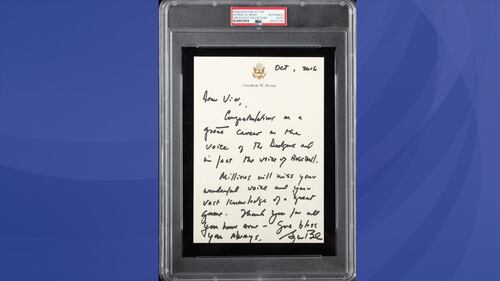 GEORGE W. BUSH
Oct, 2016
GEORGE W. BUSH
Dear Vin,
Congratulations on a
great career as the
voice of The Dodgers and
in fact the voice of Baseball.
Millions will miss your
wonderful voice and your
vast knowledge of a great
game. Thank you for all
you have done - God bless
you always,